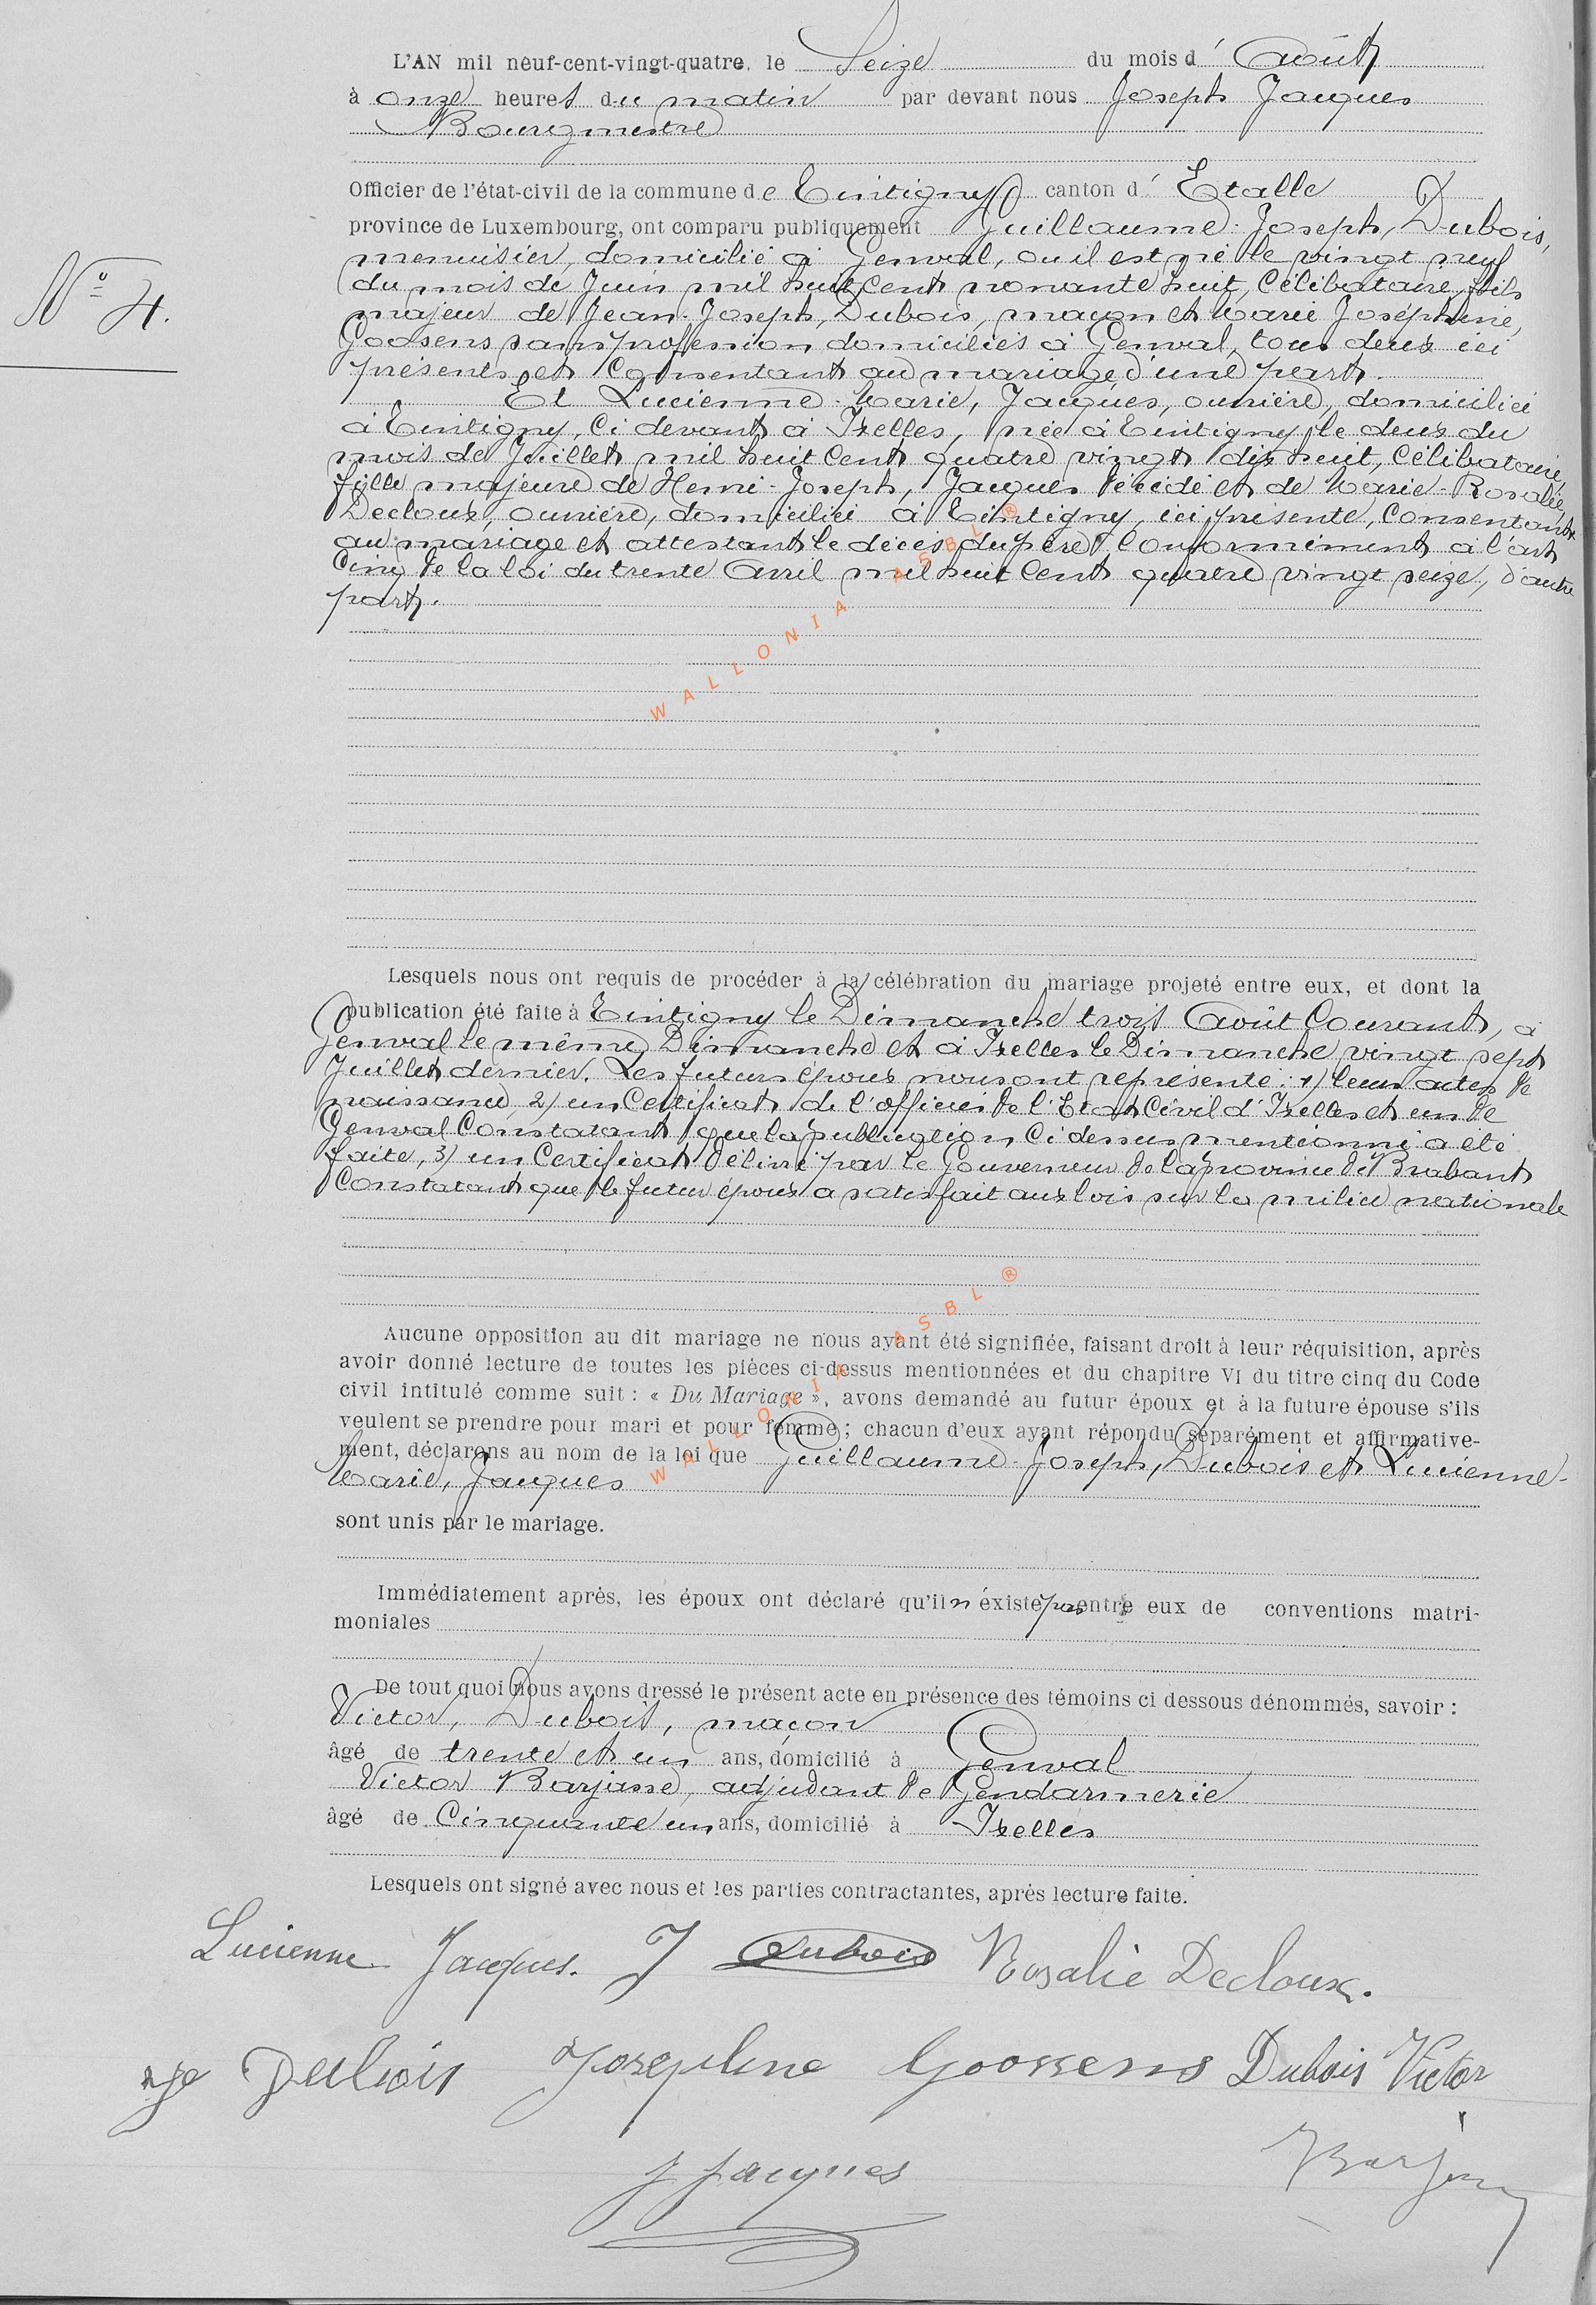 L'AN mil neuf-cent-vingt-quatre, le Seize du mois d' Août
à onze heures du matin par devant nous Joseph Jacques
Bourgmestre
Officier de l'état-civil de la commune de Tintigny canton d' Etalle
province de Luxembourg, ont comparu publiquement Guillaume-Joseph, Dubois,
menuisier, domicilié à Genval, où il est né le vingt neuf
N° 4.
du mois de Juin mil huit cent nonante huit, Célibataire, fils
majeur de Jean-Joseph, Dubois, maçon et Marie Joséphine,
Goosens sans profession domiciliés à Genval, tous deux ici
présents et Consentant au mariage d'une part.
Et Lucienne-Marie, Jacques, ouvrière, domiciliée
à Tintigny, Ci devant à Ixelles, née à Tintigny le deux du
mois de Juillet mil huit Cent quatre vingt dix huit, Célibataire,
fille majeure de Henri-Joseph, Jacques décédé et de Marie-Rosalie,
Decloux, ouvrière, domiciliée à Tintigny, ici présente, Consentante
au mariage et attestant le décès du père Conformément à l'art
Cinq de la loi du trente Avril mil huit Cent quatre vingt seize, d'autre
part.
WALLONIA ASBL ®
Lesquels nous ont requis de procéder à la célébration du mariage projeté entre eux, et dont la
publication été faite à Tintigny le Dimanche trois Août Courant, à
Genval le même Dimanche et à Ixelles le Dimanche vingt sept
Juillet dernier. Les futurs époux nous ont représenté : 1) leurs actes de
naissance, 2) un Certificat de l'officier de l'Etat Civil d'Ixelles et un de
Genval Constatant que la publication Ci dessus mentionné a été
faite, 3) un Certificat délivré par le Gouverneur de la province de Brabant
Constatant que le futur époux a satisfait aux lois sur la milice nationale
WALLONIA ASBL ®
Aucune opposition au dit mariage ne nous ayant été signifiée, faisant droit à leur réquisition, après
avoir donné lecture de toutes les pièces ci-dessus mentionnées et du chapitre VI du titre cinq du Code
civil intitulé comme suit : « Du Mariage », avons demandé au futur époux et à la future épouse s'ils
veulent se prendre pour mari et pour femme ; chacun d'eux ayant répondu séparément et affirmative-
ment, déclarons au nom de la loi que Guillaume-Joseph, Dubois et Lucienne-
Marie, Jacques
sont unis par le mariage.
Immédiatement après, les époux ont déclaré qu'il n'existe pas entre eux de conventions matri-
moniales
De tout quoi nous avons dressé le présent acte en présence des témoins ci dessous dénommés, savoir :
Victor, Dubois, maçon
âgé de trente et un ans, domicilié à Genval
Victor Barjasse, adjudant de Gendarmerie
âgé de Cinquante un ans, domicilié à Ixelles
Lesquels ont signé avec nous et les parties contractantes, après lecture faite.
Lucienne Jacques. J Dubois Rosalie Decloux.
Dubois Josephine Goossens Dubois Victor
J Jacques